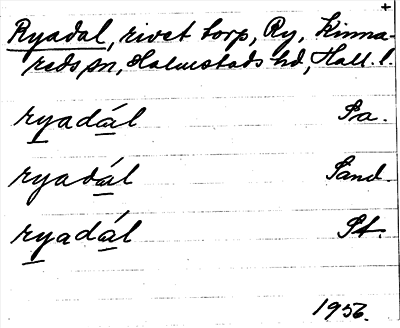 +
Ryadal, rivet torp, Ry, Kinna-
reds sn, Halmstads hd, Hall. l.
ryadál Sa.
ryadál Sand.
ryadál St.
1956.